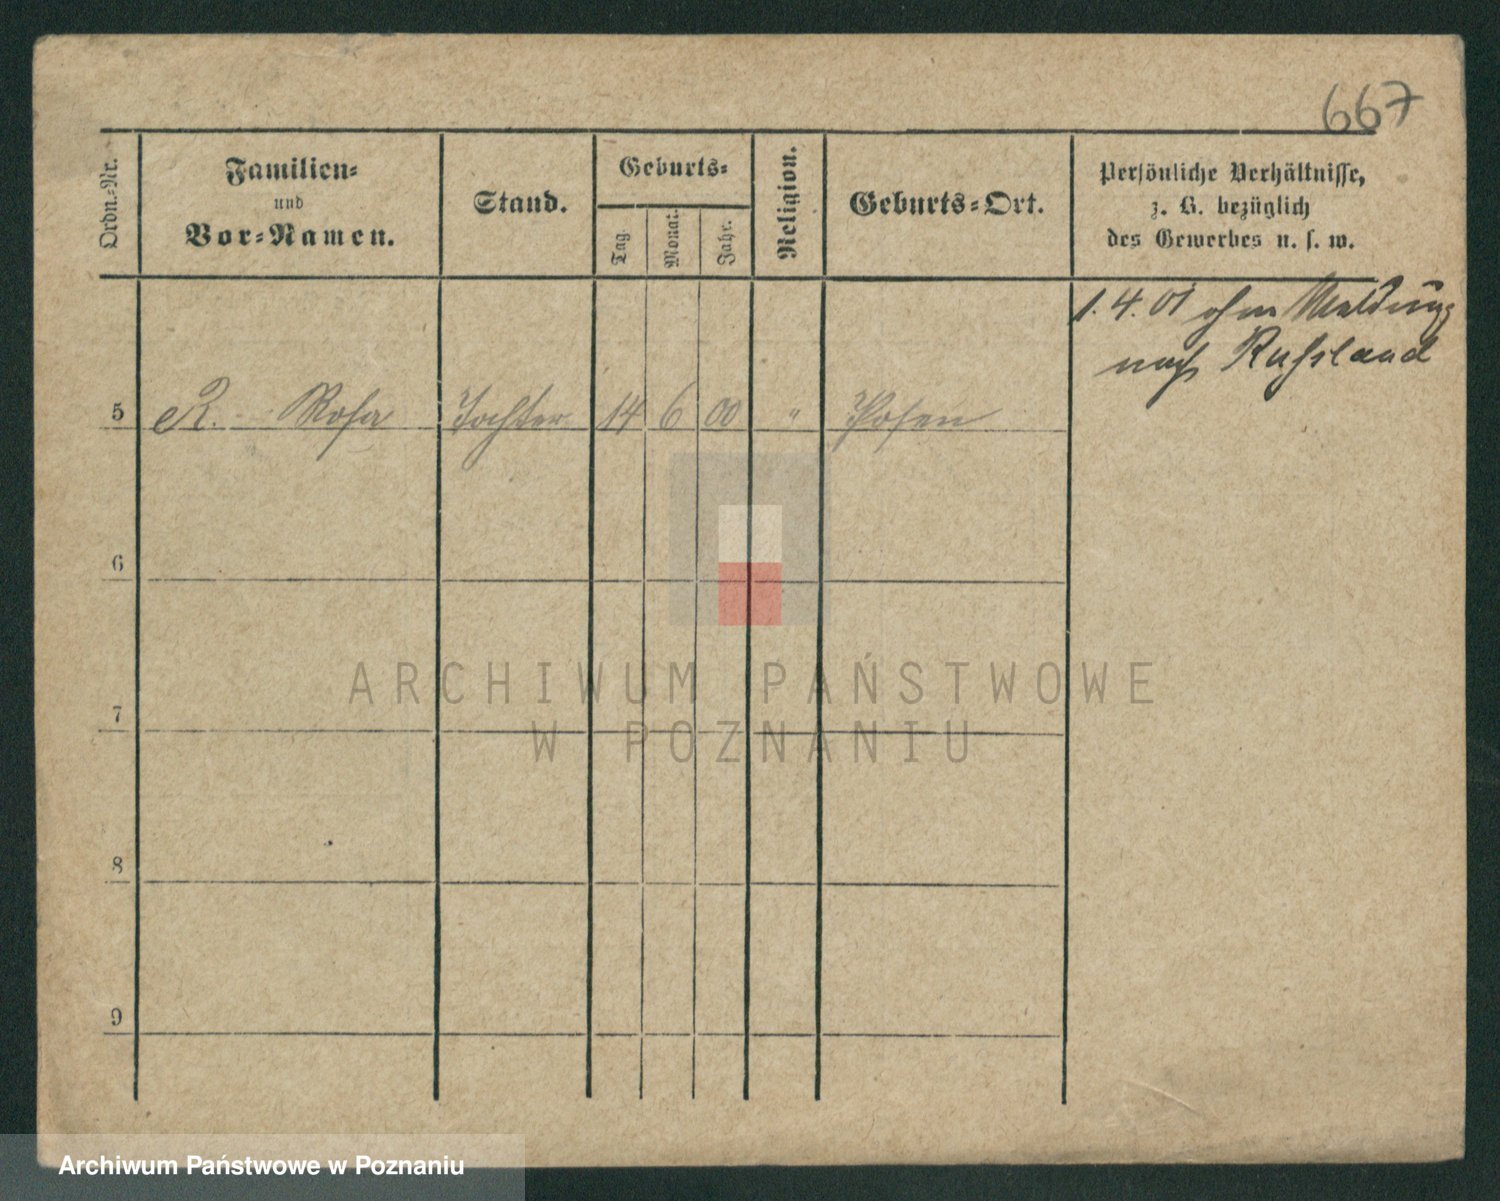 667
Ordn.-Nr.
Familien-
und
Vor-Namen.
Stand.
Geburts-
Tag.
Monat.
Jahr.
Religion.
Geburts-Ort.
Persönliche Verhältnisse,
z. B. bezüglich
des Gewerbes u. s. w.
1. 4. 01 ohne Meldung
nach Russland
5 R. Rosa Tochter 14 6 00 " Posen
6
7
8
9
ARCHIWUM PAŃSTWOWE
W POZNANIU
Archiwum Państwowe w Poznaniu